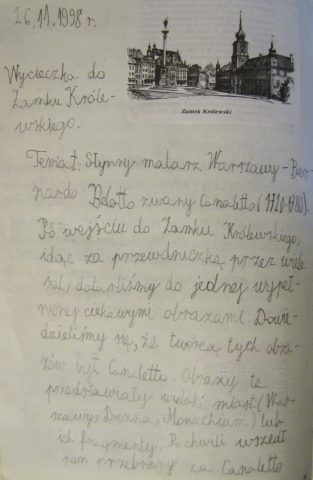 26.11.1998 r.
Zamek Królewski
Wycieczka do
Zamku Króle-
wskiego.
Temat: Słynny malarz Warszawy - Ber-
nardo Belotto zwany Canaletto (1720-1780).
Po wejściu do Zamku Królewskiego,
idąc za przewodniczką przez wiele
sal, dotarliśmy do jednej wypeł-
nionej ciekawymi obrazami. Dowie-
dzieliśmy się, że twórcą tych obra-
zów był Canaletto. Obrazy te
przedstawiały widoki miast (War-
szawy, Drezna, Monachium) lub
ich fragmenty. Po chwili wszedł
pan przebrany za Canaletto